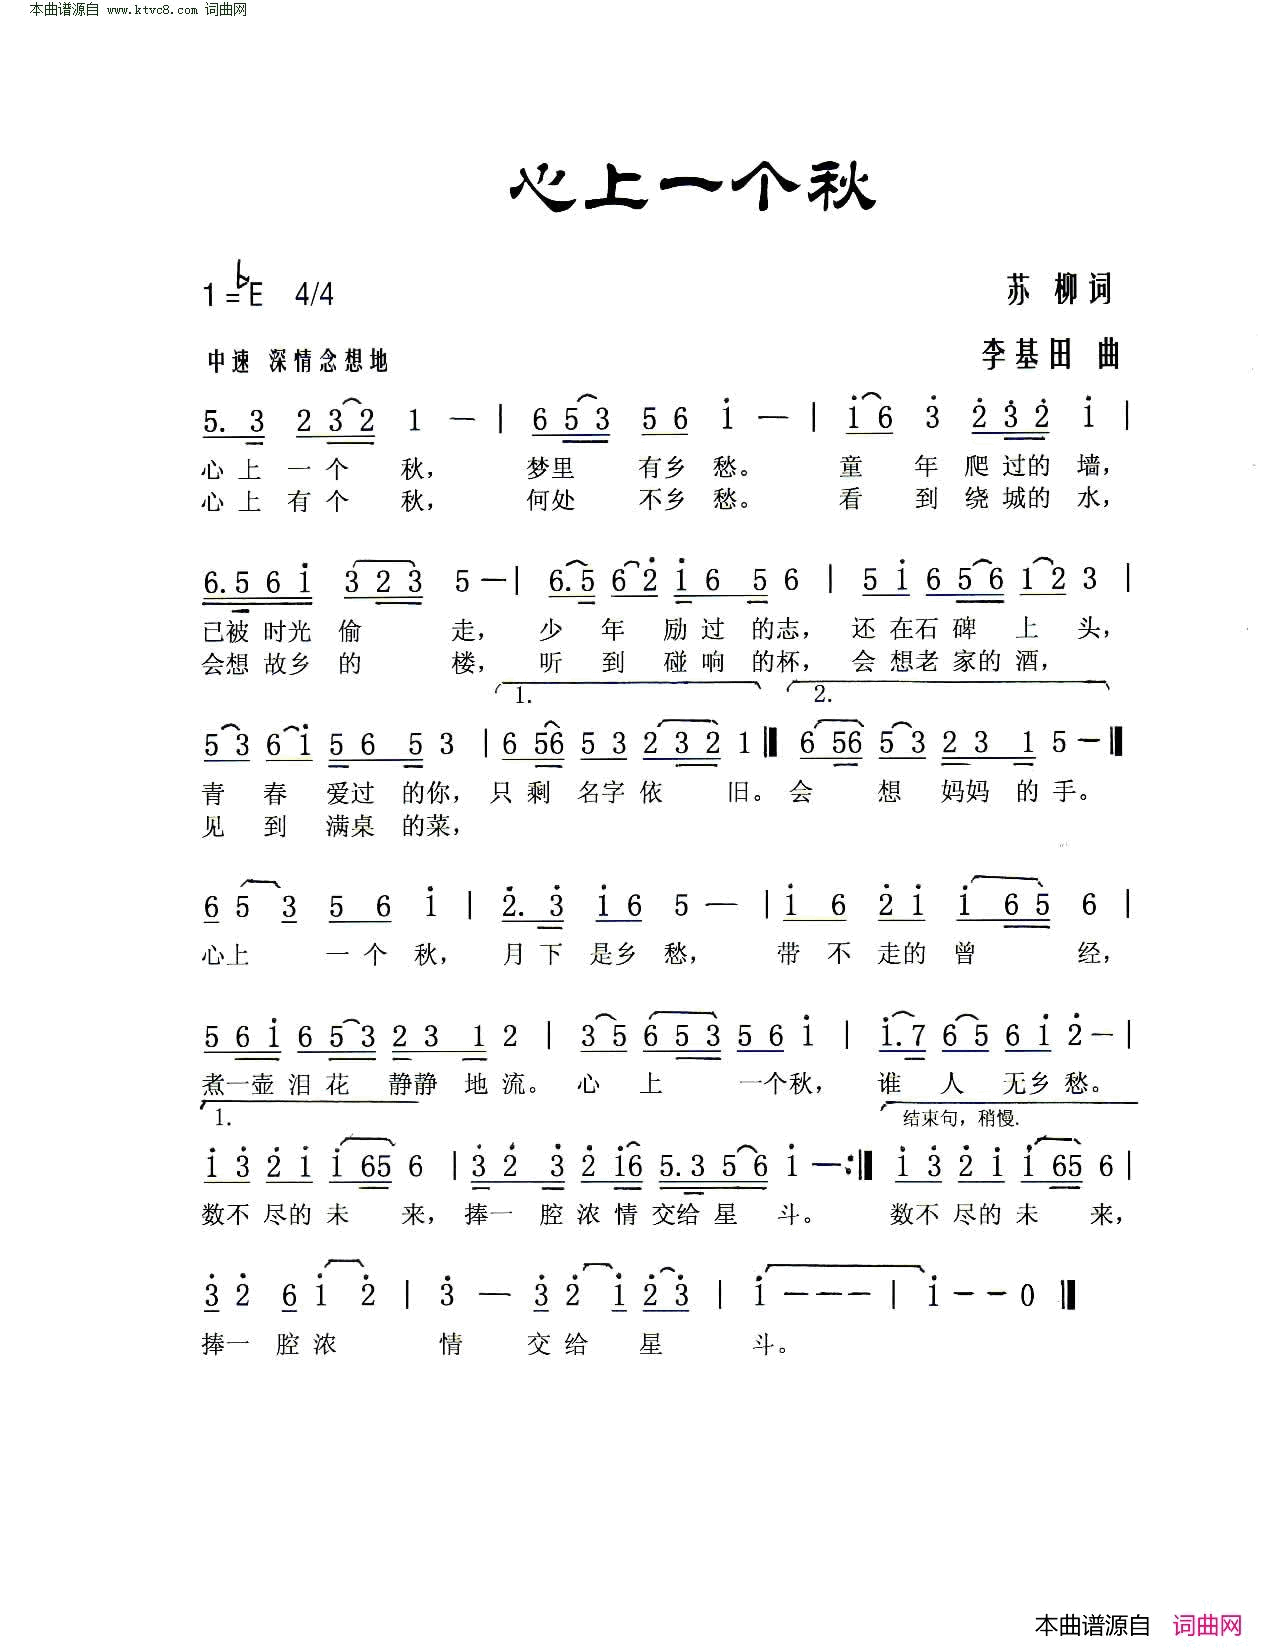 本曲谱源自 www.ktvc8.com 词曲网
心上一个秋
1=♭E 4/4
苏 柳 词
中速 深情念想地
李基田 曲
5. 3 2 3 2 1 — | 6 5 3 5 6 i — | i 6 3 2 3 2 i |
心 上 一 个 秋， 梦里 有乡 愁。 童 年 爬 过的 墙，
心 上 有 个 秋， 何处 不乡 愁。 看 到 绕 城的 水，
6. 5 6 i 3 2 3 5 — | 6. 5 6 2 i 6 5 6 | 5 i 6 5 6 1 2 3 |
已被 时光 偷 走， 少 年 励 过 的志， 还 在石 碑 上 头，
会想 故乡 的 楼， 听 到 碰 响 的杯， 会 想老 家的 酒，
1. 2.
5 3 6 i 5 6 5 3 | 6 56 5 3 2 3 2 1 ‖ 6 56 5 3 2 3 1 5 — ‖
青 春 爱过 的你， 只 剩 名字 依 旧。 会 想 妈妈 的 手。
见 到 满桌 的菜，
6 5 3 5 6 i | 2. 3 i 6 5 — | i 6 2 i i 6 5 6 |
心上 一 个 秋， 月 下 是乡 愁， 带 不 走的 曾 经，
5 6 i 6 5 3 2 3 1 2 | 3 5 6 5 3 5 6 i | i. 7 6 5 6 i 2 — |
煮一壶 泪 花 静静 地 流。 心 上 一个秋， 谁 人 无乡 愁。
1. 结束句，稍慢.
i 3 2 i i 65 6 | 3 2 3 2 i6 5. 3 5 6 i — :‖ i 3 2 i i 65 6 |
数不 尽的 未 来， 捧一 腔 浓 情 交给 星 斗。 数不 尽的 未 来，
3 2 6 i 2 | 3 — 3 2 i 2 3 | i — — — | i — — 0 ‖
捧一 腔 浓 情 交 给 星 斗。
本曲谱源自 词曲网